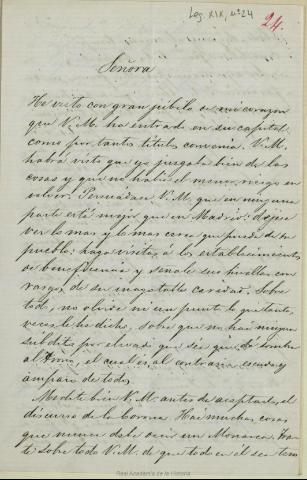 Leg. XIX, nº 24
24.
Señora
He visto con gran júbilo de mi corazon
que V. M. ha entrado en su capital
como por tantos titulos convenia. V. M.
habrá visto que yo juzgaba bien de las
cosas y que no habia el menor riesgo en
volver. Persuadase V. M. que en ninguna
parte está mejor que en Madrid: dejese
ver lo mas y lo mas cerca que pueda de su
pueblo, haga visitas á los establecimientos
de beneficencia y señale sus huellas con
rasgos de su inagotable caridad. Sobre
todo, no olvide ni un punto lo que tantas
veces le he dicho, sobre que no hai ningun
súbdito por elevado que sea que dé sombra
al Trono, el cual es al contrario escudo y
amparo de todos.
Medite bien V. M. antes de aceptarle, el
discurso de la Corona. Hai muchas cosas
que nunca debe decir un Monarca.
sobre todo V. M. de que todo en él sea
Real Academia de la Historia